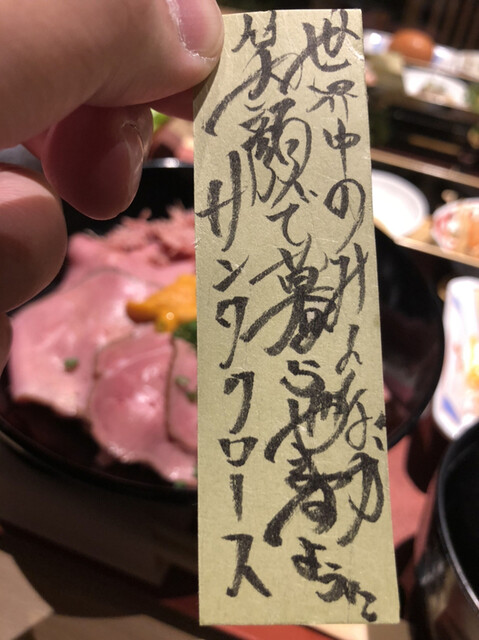 世界中のみんなが
笑顔で暮らせますように
サンタクロース